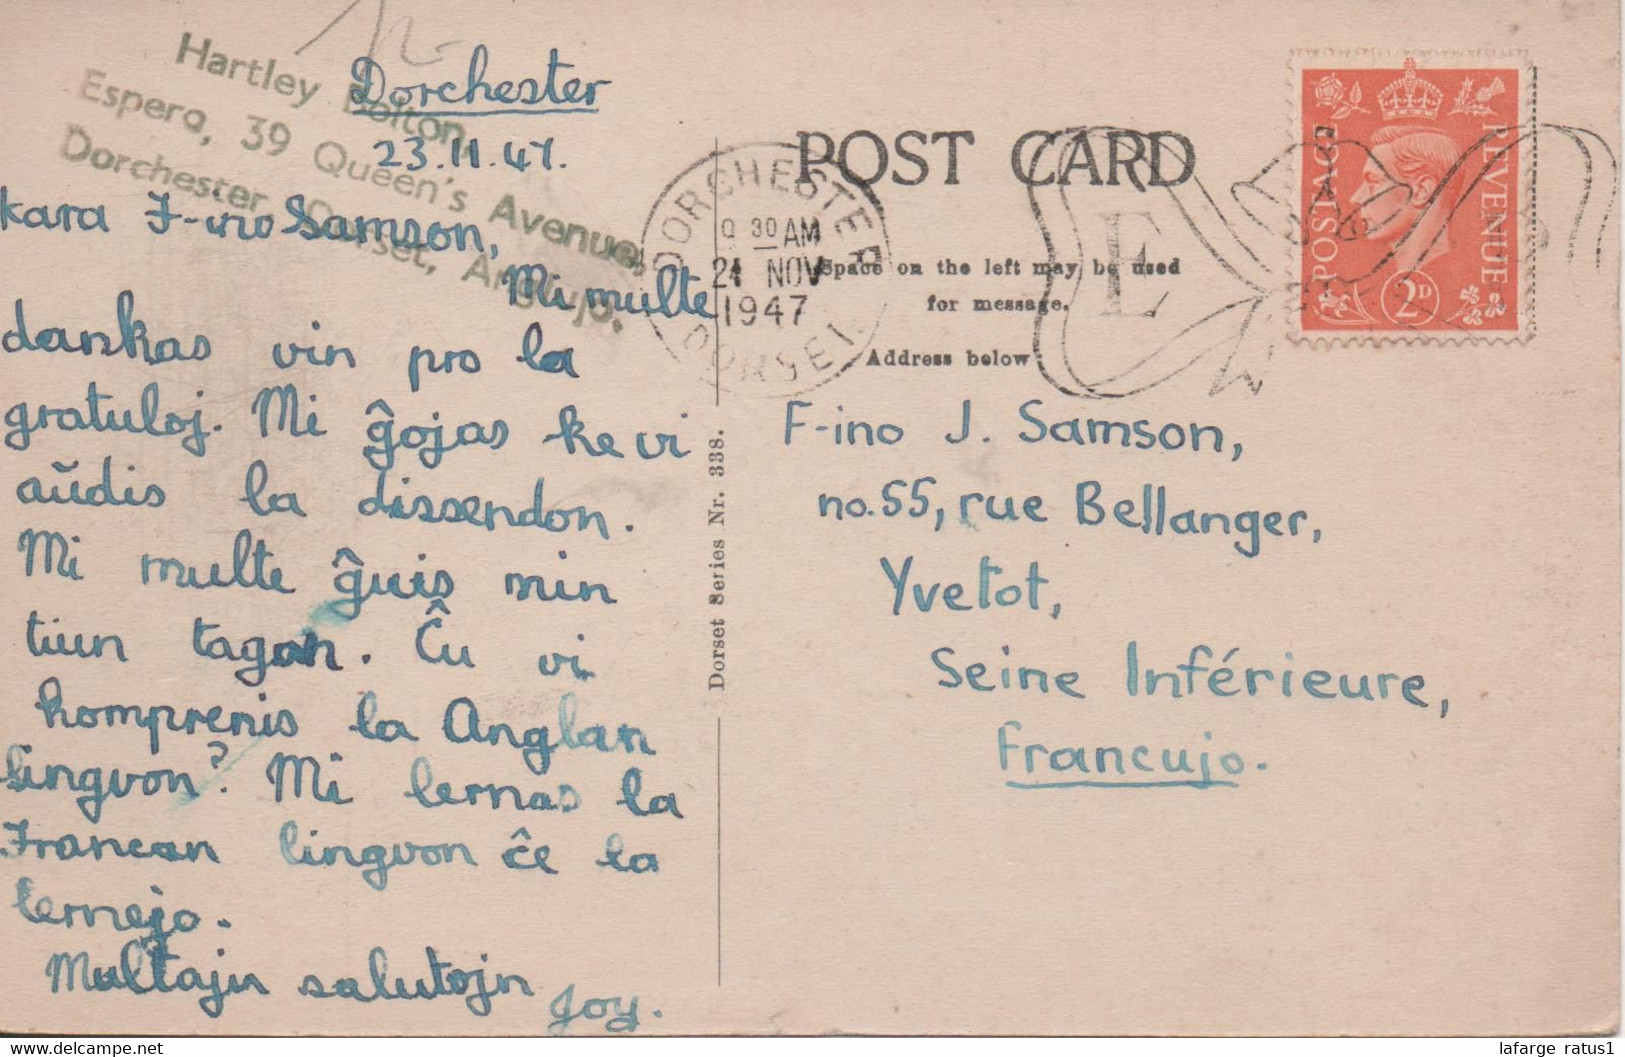 Hartley Bolton,
Espero, 39 Queen's Avenue,
Dorchester, Dorset, Anglujo.
Dorchester
23.11.47.
Kara F-ino Samson,
Mi multe
dankas vin pro la
gratuloj. Mi ĝojas ke vi
aŭdis la dissendon.
Mi multe ĝuis min
tiun tagon. Ĉu vi
komprenis la Anglan
lingvon? Mi lernas la
Francan lingvon ĉe la
lernejo.
Multajn salutojn
Joy.
Dorset Series Nr. 338.
DORCHESTER
9 30 AM
24 NOV
1947
DORSET
POST CARD
Space on the left may be used
for message.
Address below
E
POSTAGE
REVENUE
2D
F-ino J. Samson,
no.55, rue Bellanger,
Yvetot,
Seine Inférieure,
Francujo.
lafarge ratus1
www.delcampe.net